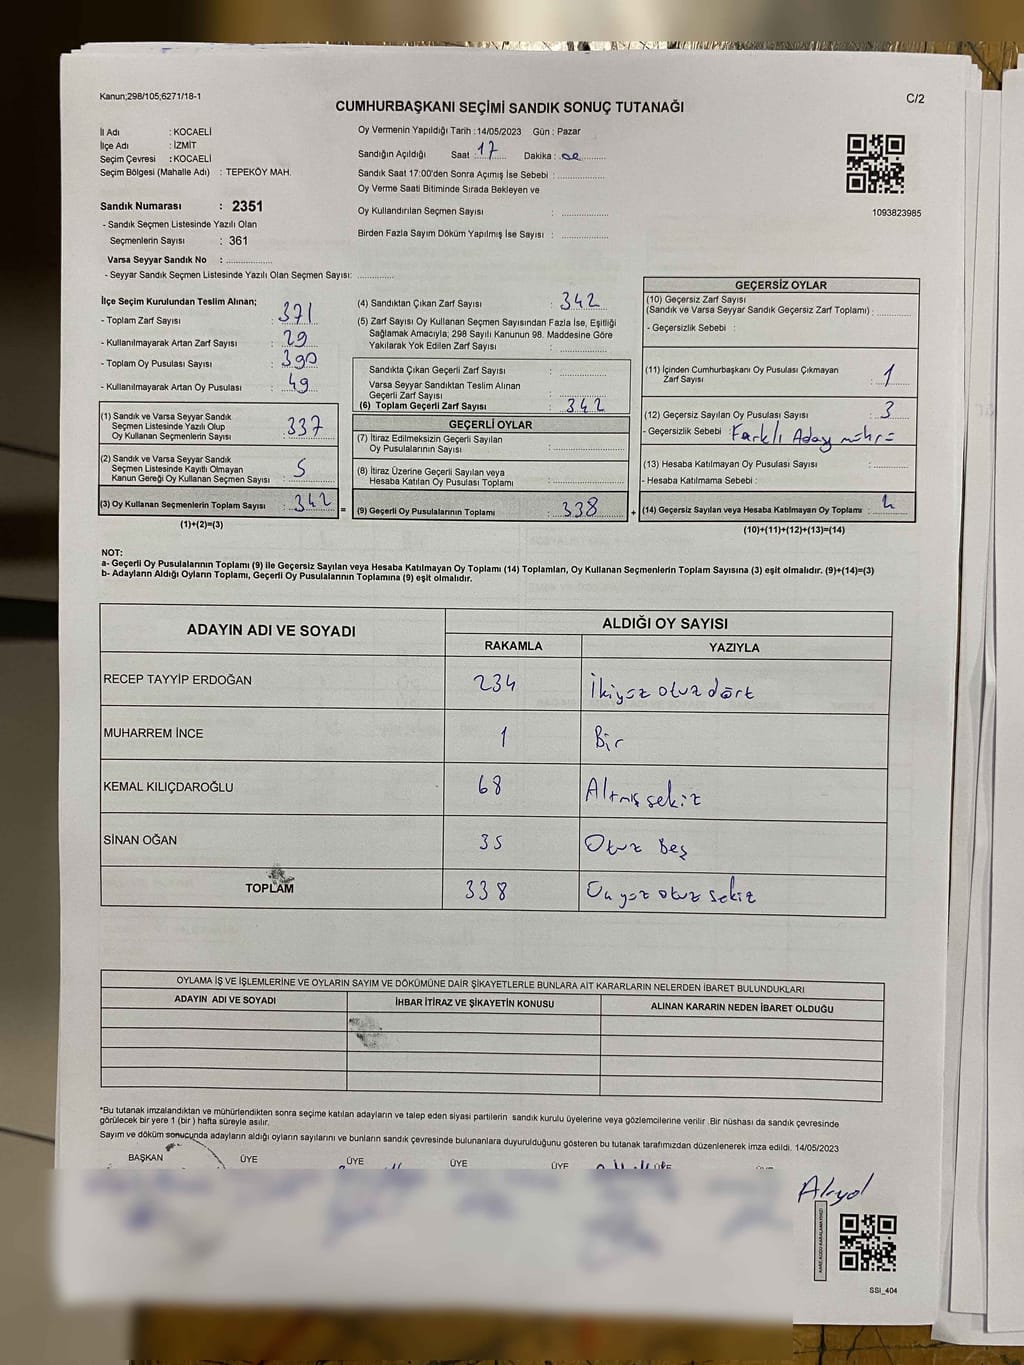 Kanun;298/105;6271/18-1
C/2
CUMHURBAŞKANI SEÇİMİ SANDIK SONUÇ TUTANAĞI
İl Adı : KOCAELİ
İlçe Adı : İZMİT
Seçim Çevresi : KOCAELİ
Seçim Bölgesi (Mahalle Adı) : TEPEKÖY MAH.
Sandık Numarası : 2351
- Sandık Seçmen Listesinde Yazılı Olan
Seçmenlerin Sayısı : 361
Varsa Seyyar Sandık No :
- Seyyar Sandık Seçmen Listesinde Yazılı Olan Seçmen Sayısı:
Oy Vermenin Yapıldığı Tarih :14/05/2023 Gün : Pazar
Sandığın Açıldığı Saat : 17 Dakika : 00
Sandık Saat 17:00'den Sonra Açımış İse Sebebi :
Oy Verme Saati Bitiminde Sırada Bekleyen ve
Oy Kullandırılan Seçmen Sayısı :
Birden Fazla Sayım Döküm Yapılmış İse Sayısı :
1093823985
İlçe Seçim Kurulundan Teslim Alınan;
- Toplam Zarf Sayısı : 371
- Kullanılmayarak Artan Zarf Sayısı : 29
- Toplam Oy Pusulası Sayısı : 390
- Kullanılmayarak Artan Oy Pusulası : 49
(1) Sandık ve Varsa Seyyar Sandık
Seçmen Listesinde Yazılı Olup
Oy Kullanan Seçmenlerin Sayısı : 337
(2) Sandık ve Varsa Seyyar Sandık
Seçmen Listesinde Kayıtlı Olmayan
Kanun Gereği Oy Kullanan Seçmen Sayısı : 5
(3) Oy Kullanan Seçmenlerin Toplam Sayısı : 342 =
(1)+(2)=(3)
(4) Sandıktan Çıkan Zarf Sayısı : 342
(5) Zarf Sayısı Oy Kullanan Seçmen Sayısından Fazla İse, Eşitliği
Sağlamak Amacıyla; 298 Sayılı Kanunun 98. Maddesine Göre
Yakılarak Yok Edilen Zarf Sayısı :
Sandıkta Çıkan Geçerli Zarf Sayısı :
Varsa Seyyar Sandıktan Teslim Alınan
Geçerli Zarf Sayısı :
(6) Toplam Geçerli Zarf Sayısı : 342
GEÇERLİ OYLAR
(7) İtiraz Edilmeksizin Geçerli Sayılan
Oy Pusulalarının Sayısı :
(8) İtiraz Üzerine Geçerli Sayılan veya
Hesaba Katılan Oy Pusulası Toplamı :
(9) Geçerli Oy Pusulalarının Toplamı : 338 +
GEÇERSİZ OYLAR
(10) Geçersiz Zarf Sayısı
(Sandık ve Varsa Seyyar Sandık Geçersiz Zarf Toplamı) :
- Geçersizlik Sebebi :
(11) İçinden Cumhurbaşkanı Oy Pusulası Çıkmayan
Zarf Sayısı : 1
(12) Geçersiz Sayılan Oy Pusulası Sayısı : 3
- Geçersizlik Sebebi : Farklı Aday
(13) Hesaba Katılmayan Oy Pusulası Sayısı :
- Hesaba Katılmama Sebebi :
(14) Geçersiz Sayılan veya Hesaba Katılmayan Oy Toplamı : 4
(10)+(11)+(12)+(13)=(14)
NOT:
a- Geçerli Oy Pusulalarının Toplamı (9) ile Geçersiz Sayılan veya Hesaba Katılmayan Oy Toplamı (14) Toplamları, Oy Kullanan Seçmenlerin Toplam Sayısına (3) eşit olmalıdır. (9)+(14)=(3)
b- Adayların Aldığı Oyların Toplamı, Geçerli Oy Pusulalarının Toplamına (9) eşit olmalıdır.
ADAYIN ADI VE SOYADI
ALDIĞI OY SAYISI
RAKAMLA YAZIYLA
RECEP TAYYİP ERDOĞAN 234 İkiyüz otuz dört
MUHARREM İNCE 1 Bir
KEMAL KILIÇDAROĞLU 68 Altmış sekiz
SİNAN OĞAN 35 Otuz Beş
TOPLAM 338 Üçyüz otuz sekiz
OYLAMA İŞ VE İŞLEMLERİNE VE OYLARIN SAYIM VE DÖKÜMÜNE DAİR ŞİKAYETLERLE BUNLARA AİT KARARLARIN NELERDEN İBARET BULUNDUKLARI
ADAYIN ADI VE SOYADI İHBAR İTİRAZ VE ŞİKAYETİN KONUSU ALINAN KARARIN NEDEN İBARET OLDUĞU
*Bu tutanak imzalandıktan ve mühürlendikten sonra seçime katılan adayların ve talep eden siyasi partilerin sandık kurulu üyelerine veya gözlemcilerine verilir .Bir nüshası da sandık çevresinde
görülecek bir yere 1 (bir ) hafta süreyle asılır.
Sayım ve döküm sonucunda adayların aldığı oyların sayılarını ve bunların sandık çevresinde bulunanlara duyurulduğunu gösteren bu tutanak tarafımızdan düzenlenerek imza edildi. 14/05/2023
BAŞKAN ÜYE ÜYE ÜYE ÜYE
Akyol
SSI_404